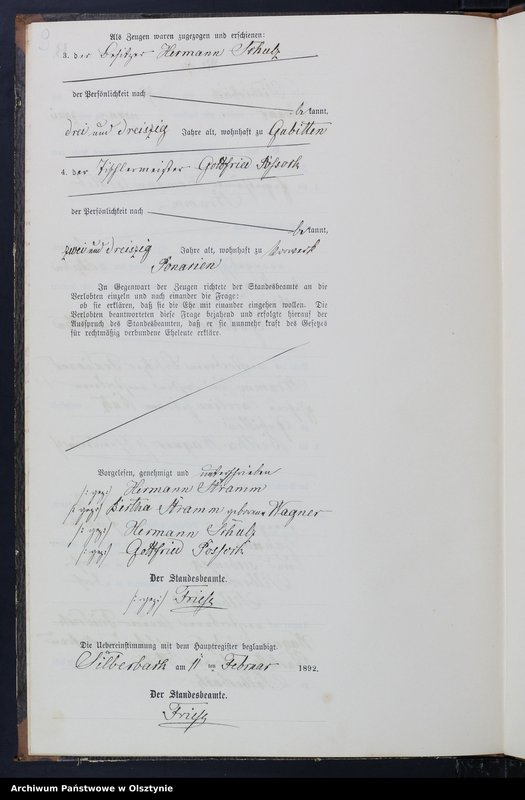 Als Zeugen waren zugezogen und erschienen:
3. der Besitzer Hermann Schulz
der Persönlichkeit nach
bekannt,
drei und dreiszig Jahre alt, wohnhaft zu Gubitten
4. der Tischlermeister Gottfried Possork
der Persönlichkeit nach
bekannt,
zwei und dreiszig Jahre alt, wohnhaft zu Vorwerk
Ponarien
In Gegenwart der Zeugen richtete der Standesbeamte an die
Verlobten einzeln und nach einander die Frage:
ob sie erklären, daß sie die Ehe mit einander eingehen wollen. Die
Verlobten beantworteten diese Frage bejahend und erfolgte hierauf der
Ausspruch des Standesbeamten, daß er sie nunmehr kraft des Gesetzes
für rechtmäßig verbundene Eheleute erkläre.
Vorgelesen, genehmigt und unterschrieben
(: gez:) Hermann Stramm
(: gez:) Bertha Stramm geborene Wagner
(: gez:) Hermann Schulz
(: gez:) Gottfried Possork
Der Standesbeamte.
(: gez:) Friesz
Die Uebereinstimmung mit dem Hauptregister beglaubigt.
Silberbach am 11 ten Februar 1892.
Der Standesbeamte.
Friesz
Archiwum Państwowe w Olsztynie